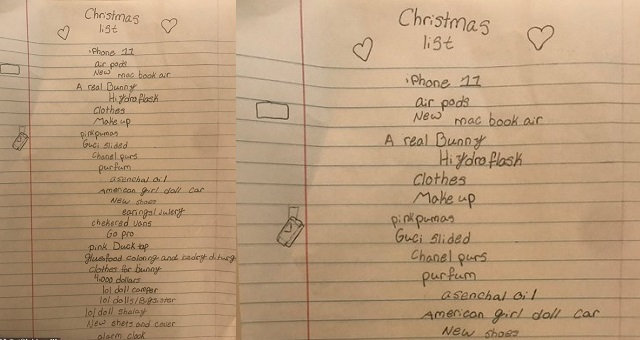 Christmas
list
iPhone 11
air pods
New mac book air
A real Bunny
Hidroflask
Clothes
Make up
pink pumas
Guci slided
Chanel purs
purfum
asenchal oil
American girl doll car
New shoes
earings/ julery
chekered vans
Go pro
pink Duck tap
clothes for bunny
4,000 dollars
lol doll camper
lol dolls/Bigs
lol doll
New shets and cover
alarm clock
Christmas
list
iPhone 11
air pods
New mac book air
A real Bunny
Hidroflask
Clothes
Make up
pink pumas
Guci slided
Chanel purs
purfum
asenchal oil
American girl doll car
New shoes